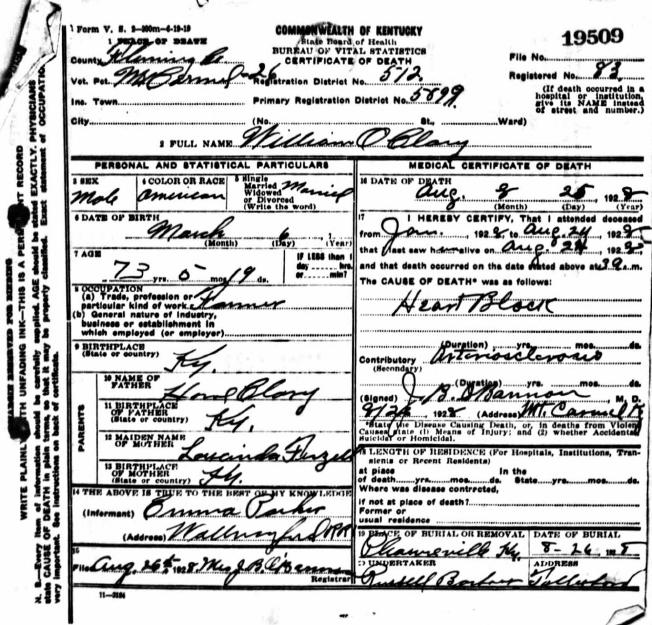 Form V. S. 2-200m-6-19-19
COMMONWEALTH OF KENTUCKY
State Board of Health
BUREAU OF VITAL STATISTICS
CERTIFICATE OF DEATH
19509
1 PLACE OF DEATH
County Fleming Co
File No.
Vot. Pct. 26 Registration District No. 512
Registered No. 83
Inc. Town Primary Registration District No. 5899
(If death occurred in a hospital or institution, give its NAME instead of street and number.)
City (No. St., Ward)
2 FULL NAME William O Clary
PERSONAL AND STATISTICAL PARTICULARS
3 SEX
Male
4 COLOR OR RACE
American
5 Single
Married
Widowed
or Divorced
(Write the word)
Married
6 DATE OF BIRTH
March 6, 1
(Month) (Day) (Year)
7 AGE
73 yrs. 5 mos. 19 ds.
IF LESS than 1
day hrs.
or min?
8 OCCUPATION
(a) Trade, profession or
particular kind of work Farmer
(b) General nature of industry,
business or establishment in
which employed (or employer)
9 BIRTHPLACE
(State or country)
Ky.
PARENTS
10 NAME OF
FATHER
Clary
11 BIRTHPLACE
OF FATHER
(State or country)
Ky.
12 MAIDEN NAME
OF MOTHER
Loucinda
13 BIRTHPLACE
OF MOTHER
(State or country)
Ky.
14 THE ABOVE IS TRUE TO THE BEST OF MY KNOWLEDGE
(Informant) Emma Parker
(Address) Wallingford
15
Filed Aug 26th 1928 Mrs J. B. O'Bannon
Registrar
11-3184
MEDICAL CERTIFICATE OF DEATH
16 DATE OF DEATH
Aug. 25 1928
(Month) (Day) (Year)
17 I HEREBY CERTIFY, That I attended deceased
from Jan. 1928 to Aug. 24, 1928
that I last saw him alive on Aug 24 1928
and that death occurred on the date stated above at m.
The CAUSE OF DEATH* was as follows:
Heart Block
(Duration) yrs. mos. ds.
Contributory Arteriosclerosis
(Secondary)
(Duration) yrs. mos. ds.
(Signed) J. B. O'Bannon, M. D.
8/26 1928 (Address) Mt. Carmel Ky
*State the Disease Causing Death, or, in deaths from Violent
Causes state (1) Means of Injury; and (2) whether Accidental,
Suicidal or Homicidal.
18 LENGTH OF RESIDENCE (For Hospitals, Institutions, Transients or Recent Residents)
at place In the
of death yrs. mos. ds. State yrs. mos. ds.
Where was disease contracted,
if not at place of death?
Former or
usual residence
19 PLACE OF BURIAL OR REMOVAL
Ky.
DATE OF BURIAL
8-26 1928
20 UNDERTAKER
Russell Barbour
ADDRESS
MARGIN RESERVED FOR BINDING
WRITE PLAINLY WITH UNFADING INK—THIS IS A PERMANENT RECORD
N. B.—Every item of information should be carefully supplied. AGE should be stated EXACTLY. PHYSICIANS should
state CAUSE OF DEATH in plain terms, so that it may be properly classified. Exact statement of OCCUPATION
very important. See instructions on back of certificate.